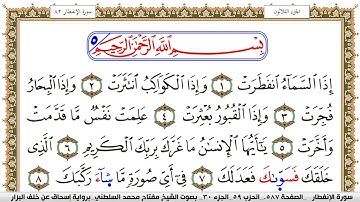 الجزء الثلاثون
سورة الإنفطار ٨٢
بِسْمِ اللَّهِ الرَّحْمَٰنِ الرَّحِيمِ ٥
إِذَا السَّمَاءُ انفَطَرَتْ ١ وَإِذَا الْكَوَاكِبُ انتَثَرَتْ ٢ وَإِذَا الْبِحَارُ
فُجِّرَتْ ٣ وَإِذَا الْقُبُورُ بُعْثِرَتْ ٤ عَلِمَتْ نَفْسٌ مَّا قَدَّمَتْ
وَأَخَّرَتْ ٥ يَٰأَيُّهَا الْإِنسَٰنُ مَا غَرَّكَ بِرَبِّكَ الْكَرِيمِ ٦ الَّذِي
خَلَقَكَ فَسَوَّىٰكَ فَعَدَّلَكَ ٧ فِي أَيِّ صُورَةٍ مَّا شَاءَ رَكَّبَكَ ٨
سورة الإنفطار الصفحة ٥٨٧ الحزب ٥٩ الجزء ٣٠ بصوت الشيخ مفتاح محمد السلطني برواية إسحاق عن خلف البزار